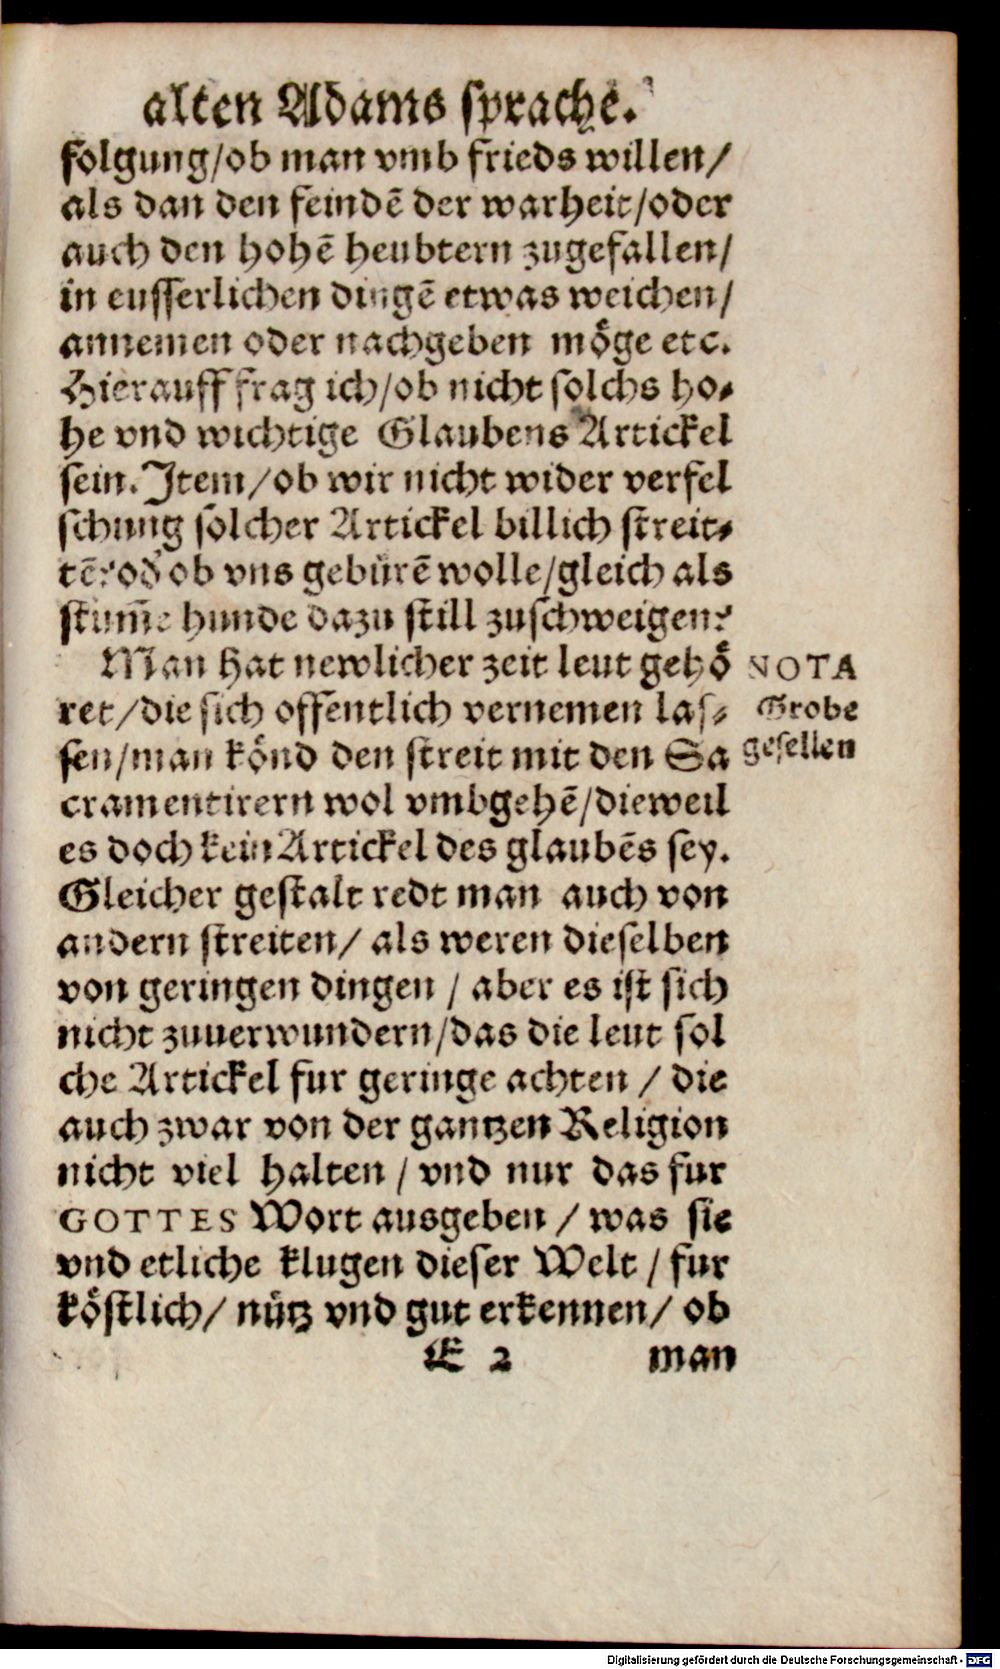 alten Adams sprache.
folgung/ob man vmb frieds willen/
als dan den feindē der warheit/oder
auch den hohē heubtern zugefallen/
in eusserlichen dingē etwas weichen/
annemen oder nachgeben möge etc.
Hierauff frag ich/ob nicht solchs ho⸗
he vnd wichtige Glaubens Artickel
sein. Item/ob wir nicht wider verfel
schung solcher Artickel billich streit⸗
tē?od' ob vns gebürē wolle/gleich als
stum̄e hunde dazu still zuschweigen?
Man hat newlicher zeit leut gehö
ret/die sich offentlich vernemen las⸗
sen/man könd den streit mit den Sa
cramentirern wol vmbgehē/dieweil
es doch kein Artickel des glaubēs sey.
Gleicher gestalt redt man auch von
andern streiten/ als weren dieselben
von geringen dingen / aber es ist sich
nicht zuuerwundern/das die leut sol
che Artickel fur geringe achten / die
auch zwar von der gantzen Religion
nicht viel halten / vnd nur das fur
GOTTES Wort ausgeben / was sie
vnd etliche klugen dieser Welt / fur
köstlich/ nütz vnd gut erkennen/ ob
E 2 man
NOTA
Grobe
gesellen
Digitalisierung gefördert durch die Deutsche Forschungsgemeinschaft - DFG